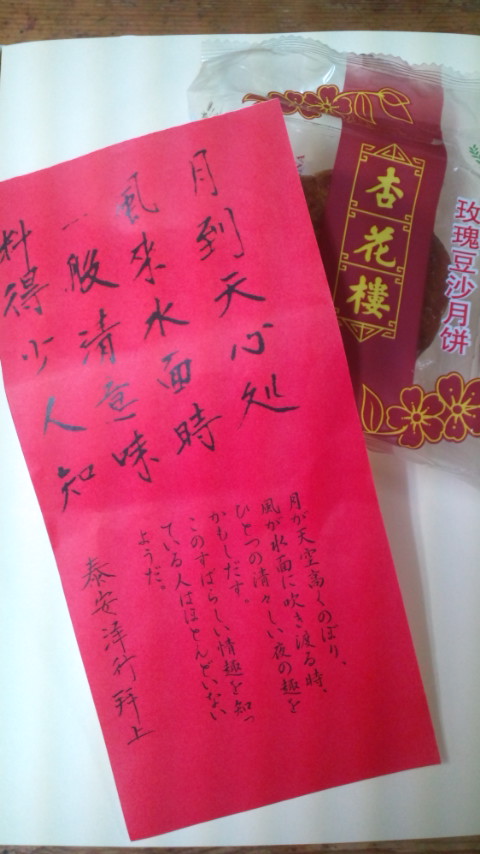 月到天心処
風来水面時
一般清意味
料得少人知
月が天空高くのぼり、
風が水面に吹き渡る時、
ひとつの清々しい夜の趣を
かもしだす。
このすばらしい情趣を知っ
ている人はほとんどいない
ようだ。
泰安洋行拜上
杏花樓
玫瑰豆沙月饼